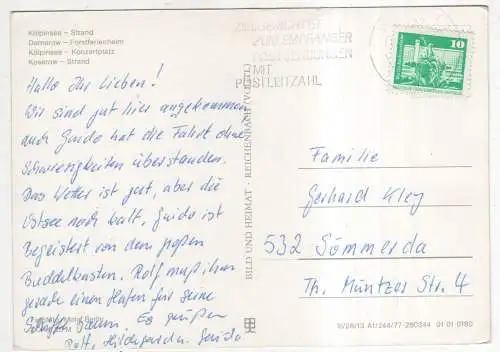 Kölpinsee – Strand
Damerow – Forstferienheim
Kölpinsee – Konzertplatz
Koserow – Strand
Hallo Ihr Lieben!
Wir sind gut hier angekommen
auch Guido hat die Fahrt ohne
Schwierigkeiten überstanden.
Das Wetter ist gut, aber die
Ostsee noch kalt. Guido ist
begeistert von dem großen
Buddelkasten. Rolf muß ihm
gerade einen Hafen für seine
Schiffe bauen. Es grüßen
Rolf, Hildegard u. Guido
BILD UND HEIMAT · REICHENBACH (VOGTL)
ZUM EMPFÄNGER
MIT
POSTLEITZAHL
10
Familie
Gerhard Kley
532 Sömmerda
Th. Müntzer Str. 4
V/28/13 A1/244/77-280344 01 01 0180